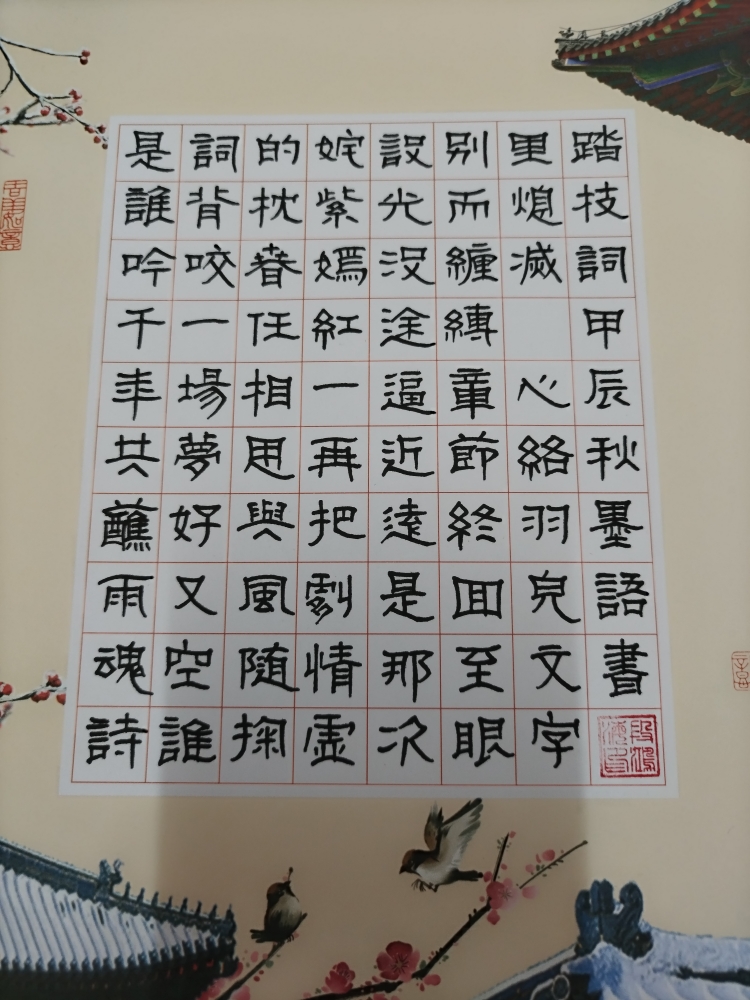 是誰吟千年共蘸雨魂詩
詞背咬一場夢好又空誰
的枕眷任相思與風随掬
姹紫嫣紅一再把劇情虛
設光没途逼近遠是那次
别而纏縛章節終回至眼
里熄滅 心絡羽兒文字
踏技詞甲辰秋墨語書